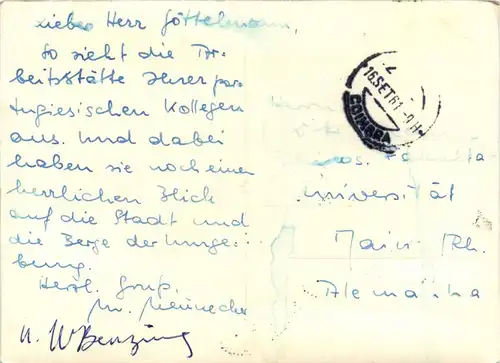 Lieber Herr Göttelmann,
So sieht die Ar-
beitsstätte Ihrer por-
tugiesischen Kollegen
aus. Und dabei
haben sie noch einen
herrlichen Blick
auf die Stadt und
die Berge der Umge-
bung.
Herzl. Gruß
u. W Benzing
16.SET.61
COIMBRA
Herrn
Universität
Mainz Rh.
Alemanha